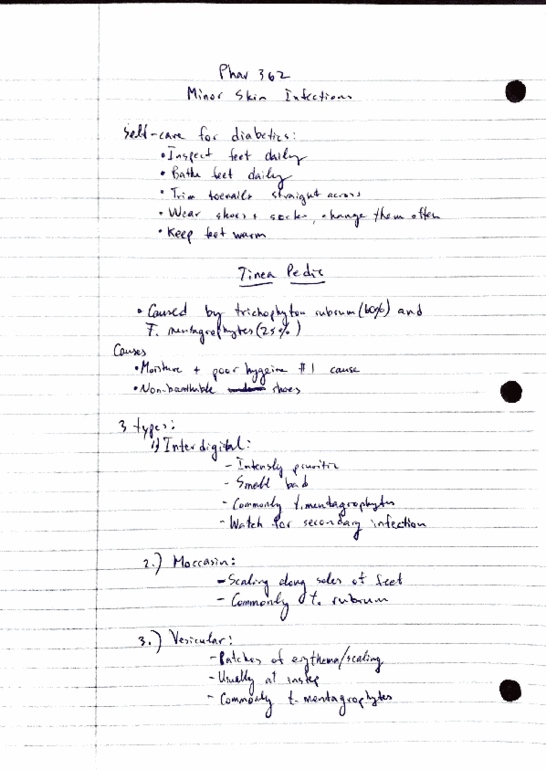 Phar 362
Minor Skin Infections
Self-care for diabetics:
• Inspect feet daily
• Bathe feet daily
• Trim toenails straight across
• Wear shoes + socks, change them often
• Keep feet warm
Tinea Pedic
• Caused by trichophyton rubrum (60%) and
T. mentagrophytes (25%)
Causes
• Moisture + poor hygeine #1 cause
• Non-breathable shoes
3 types:
1) Interdigital:
- Intensly pruritic
- Smell bad
- Commonly t. mentagrophytes
- Watch for secondary infection
2.) Moccasin:
- Scaling along soles of feet
- Commonly t. rubrum
3.) Vesicular:
- Patches of erythema/scaling
- Usually at instep
- Commonly t. mentagrophytes